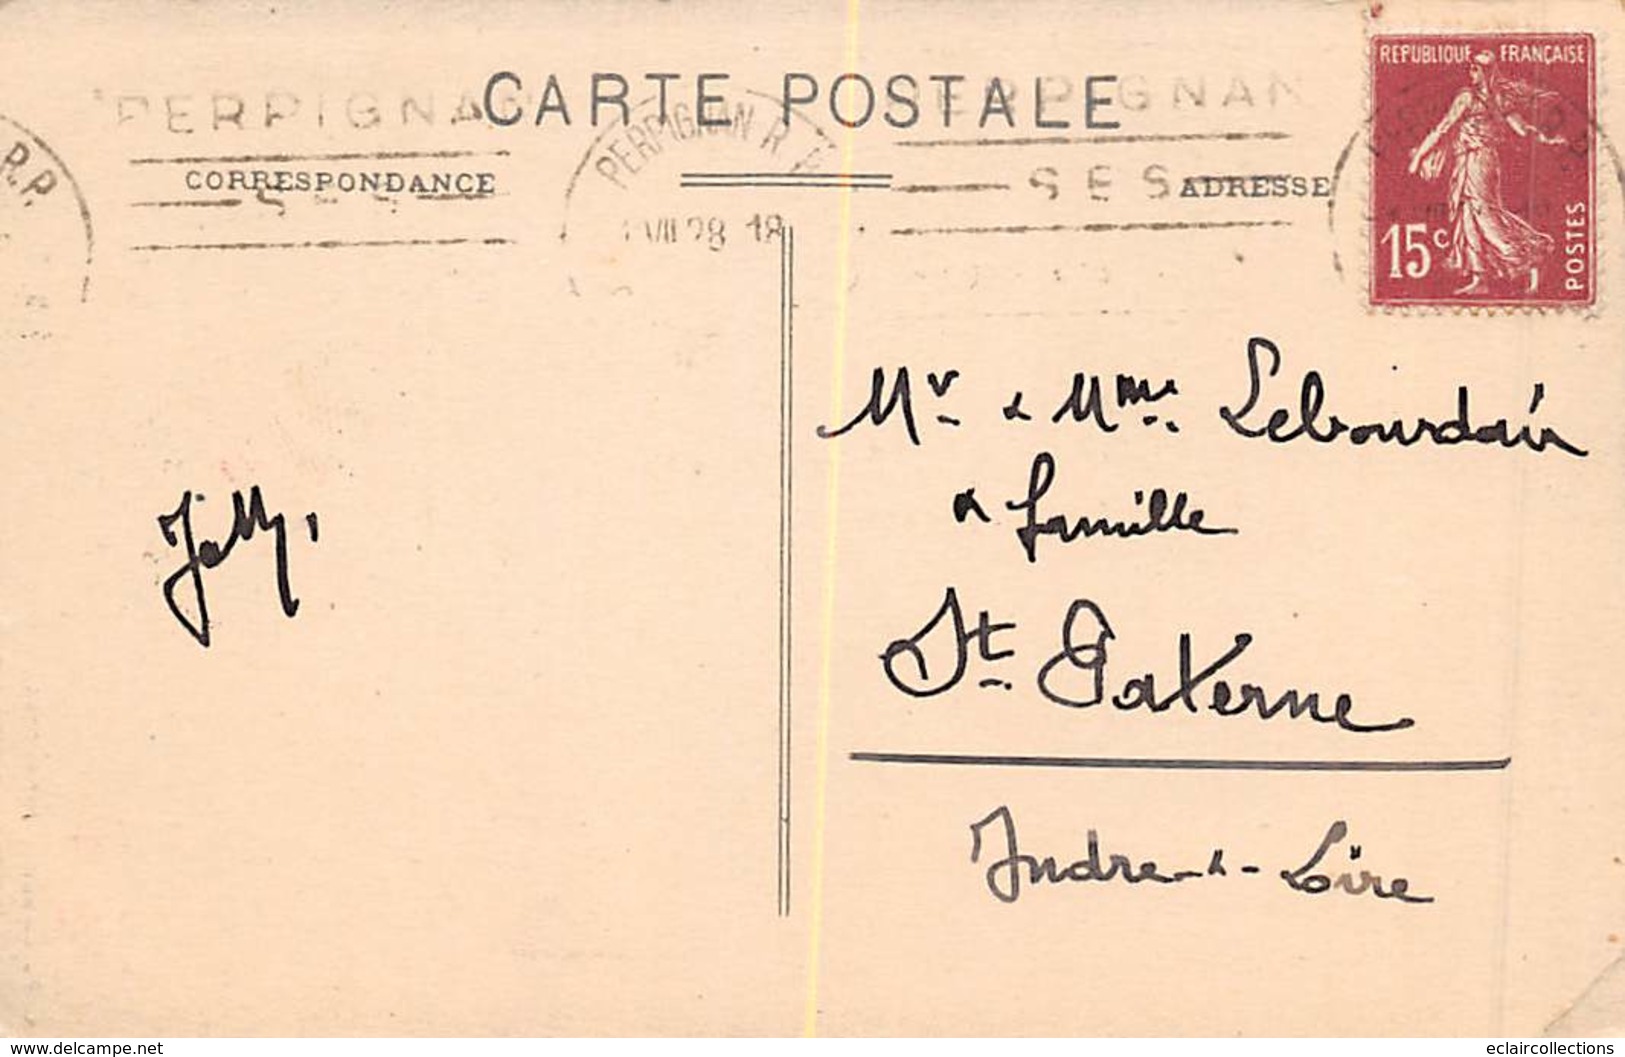 CARTE POSTALE
PERPIGNAN
PERPIGNAN
PERPIGNAN R.P.
R.P.
CORRESPONDANCE
ADRESSE
SES
VII 28 18
REPUBLIQUE FRANÇAISE
15c
POSTES
Mr & Mme Lebourdais
& famille
St Paterne
Indre-&-Loire
www.delcampe.net
eclaircollections